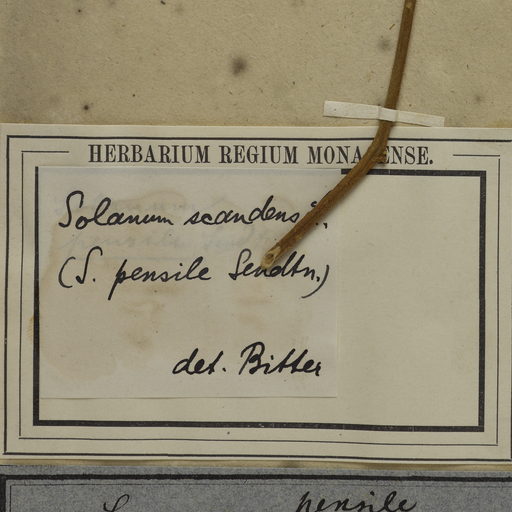 HERBARIUM REGIUM MONACENSE.
Solanum scandens
(S. pensile Sendtn.)
det. Bitter
S. pensile